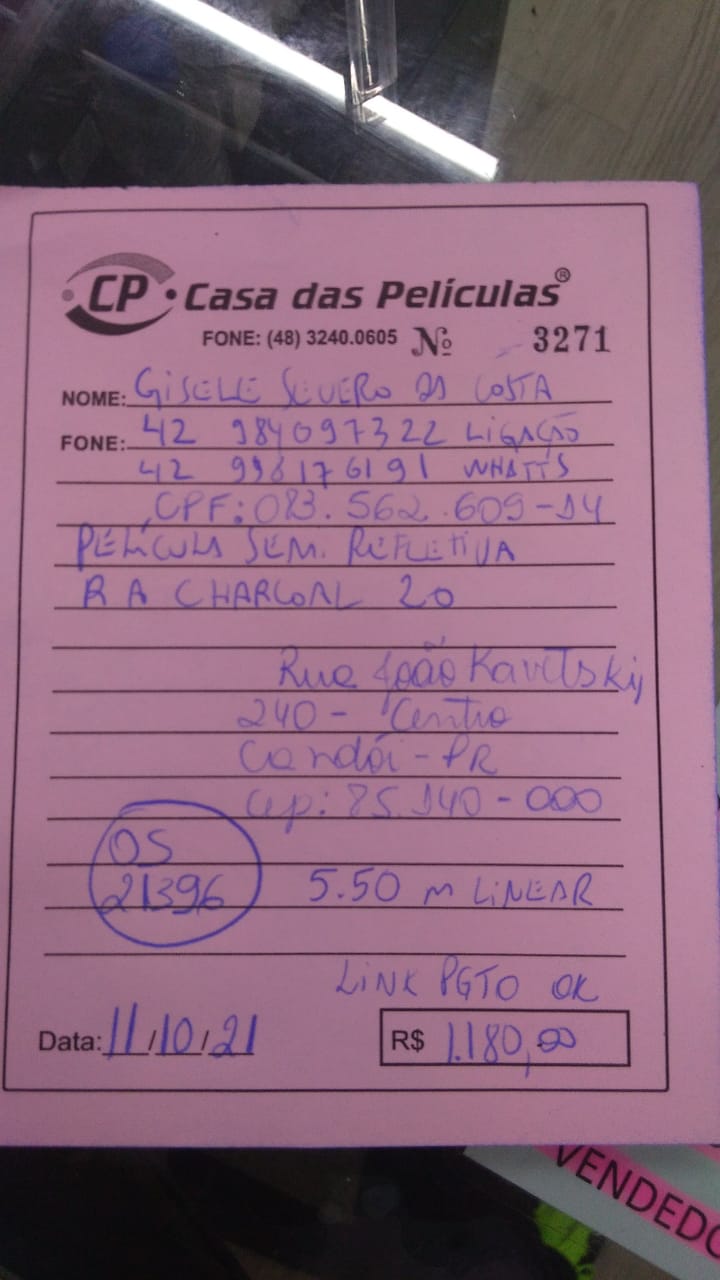 CP • Casa das Películas®
FONE: (48) 3240.0605 Nº 3271
NOME: GISELE SEVERO DA COSTA
FONE: 42 984097322 LIGAÇÃO
42 998176191 WHATTS
CPF: 083.562.609-14
PELÍCULA SEMI REFLETIVA
R A CHARCOAL 20
Rua João Kavitski,
240 - Centro
Candói - PR
Cep: 85.140-000
OS
21396 5.50 m LINEAR
LINK PGTO OK
Data: 11/10/21 R$ 1.180,00
VENDEDO